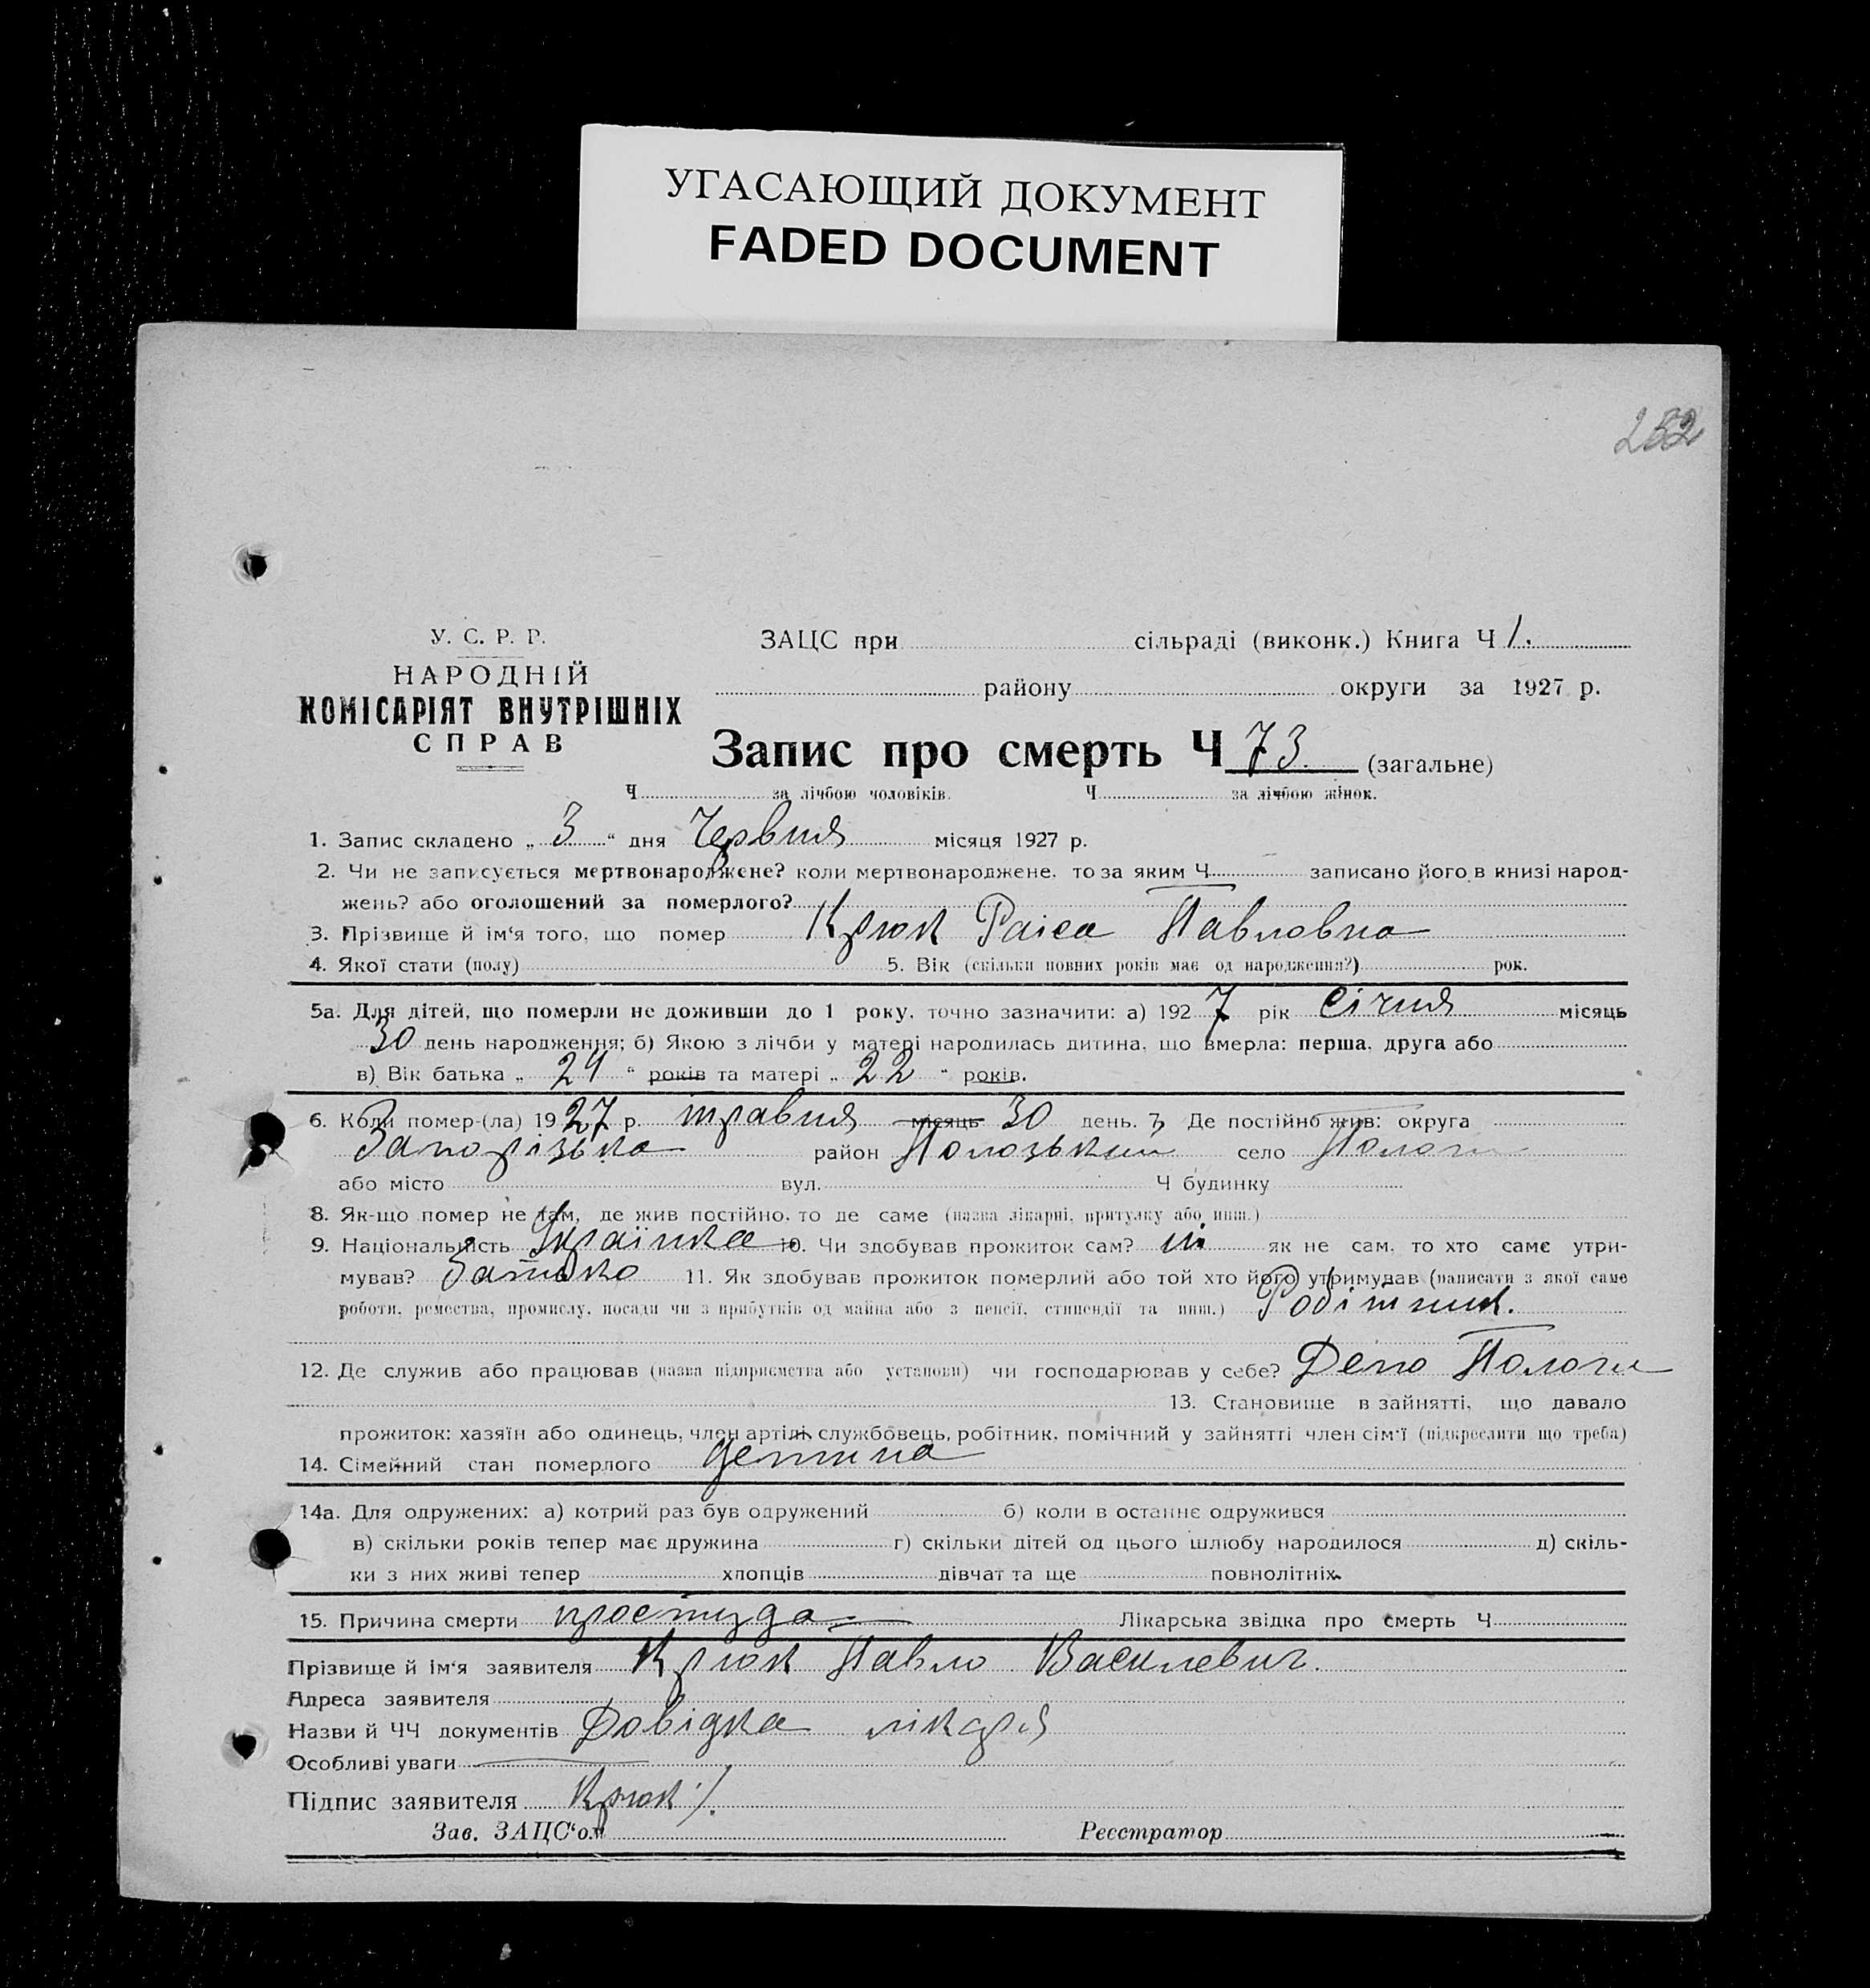 УГАСАЮЩИЙ ДОКУМЕНТ
FADED DOCUMENT
252
У. С. Р. Р.
НАРОДНІЙ
КОМІСАРІЯТ ВНУТРІШНІХ
СПРАВ
ЗАЦС при сільраді (виконк.) Книга Ч 1.
району округи за 1927 р.
Запис про смерть Ч 73. (загальне)
Ч за лічбою чоловіків. Ч за лічбою жінок.
1. Запис складено „ 3 “ дня Червня місяця 1927 р.
2. Чи не записується мертвонароджене? коли мертвонароджене, то за яким Ч записано його в книзі народ-
жень? або оголошений за померлого?
3. Прізвище й ім‘я того, що помер Крюк Раіса Павловна
4. Якої стати (полу) 5. Вік (скільки повних років має од народження?) рок.
5а. Для дітей, що померли не доживши до 1 року, точно зазначити: а) 1927 рік Січня місяць
30 день народження; б) Якою з лічби у матері народилась дитина, що вмерла: перша, друга або
в) Вік батька „ 24 “ років та матері „ 22 “ років.
6. Коли помер-(ла) 1927 р. травня місяць 30 день. 7. Де постійно жив: округа
Запорізька район Пологький село Пологи
або місто вул. Ч будинку
8. Як-що помер не там, де жив постійно, то де саме (назва лікарні, притулку або инш.)
9. Національність Українка 10. Чи здобував прожиток сам? ні як не сам, то хто саме утри-
мував? Батько 11. Як здобував прожиток померлий або той хто його утримував (написати з якої саме
роботи, ремества, промислу, посади чи з прибутків од майна або з пенсії, стипендії та инш.) Робітник.
12. Де служив або працював (назва підприємства або установи) чи господарював у себе? Депо Пологи
13. Становище в зайнятті, що давало
прожиток: хазяїн або одинець, член артілі, службовець, робітник, помічний у зайнятті член сім‘ї (підкреслити що треба)
14. Сімейний стан померлого дитина
14а. Для одружених: а) котрий раз був одружений б) коли в останнє одружився
в) скільки років тепер має дружина г) скільки дітей од цього шлюбу народилося д) скіль-
ки з них живі тепер хлопців дівчат та ще повнолітніх.
15. Причина смерти простуда Лікарська звідка про смерть Ч
Прізвище й ім‘я заявителя Крюк Павло Василевич.
Адреса заявителя
Назви й ЧЧ документів Довідка лікаря
Особливі уваги
Підпис заявителя Крюк
Зав. ЗАЦС‘ом Реєстратор